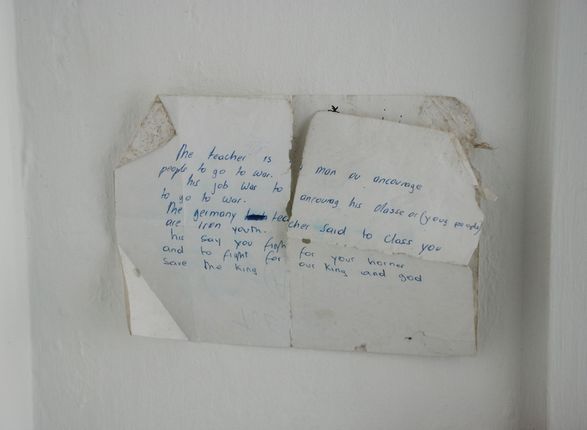 The teacher is man ou ancourage
people to go to war.
his job war to ancourag his classe or (young people)
to go to war.
The germany teacher said to class you
are iron youth.
his say you fight for your horner
and to fight for our king and god
save the king